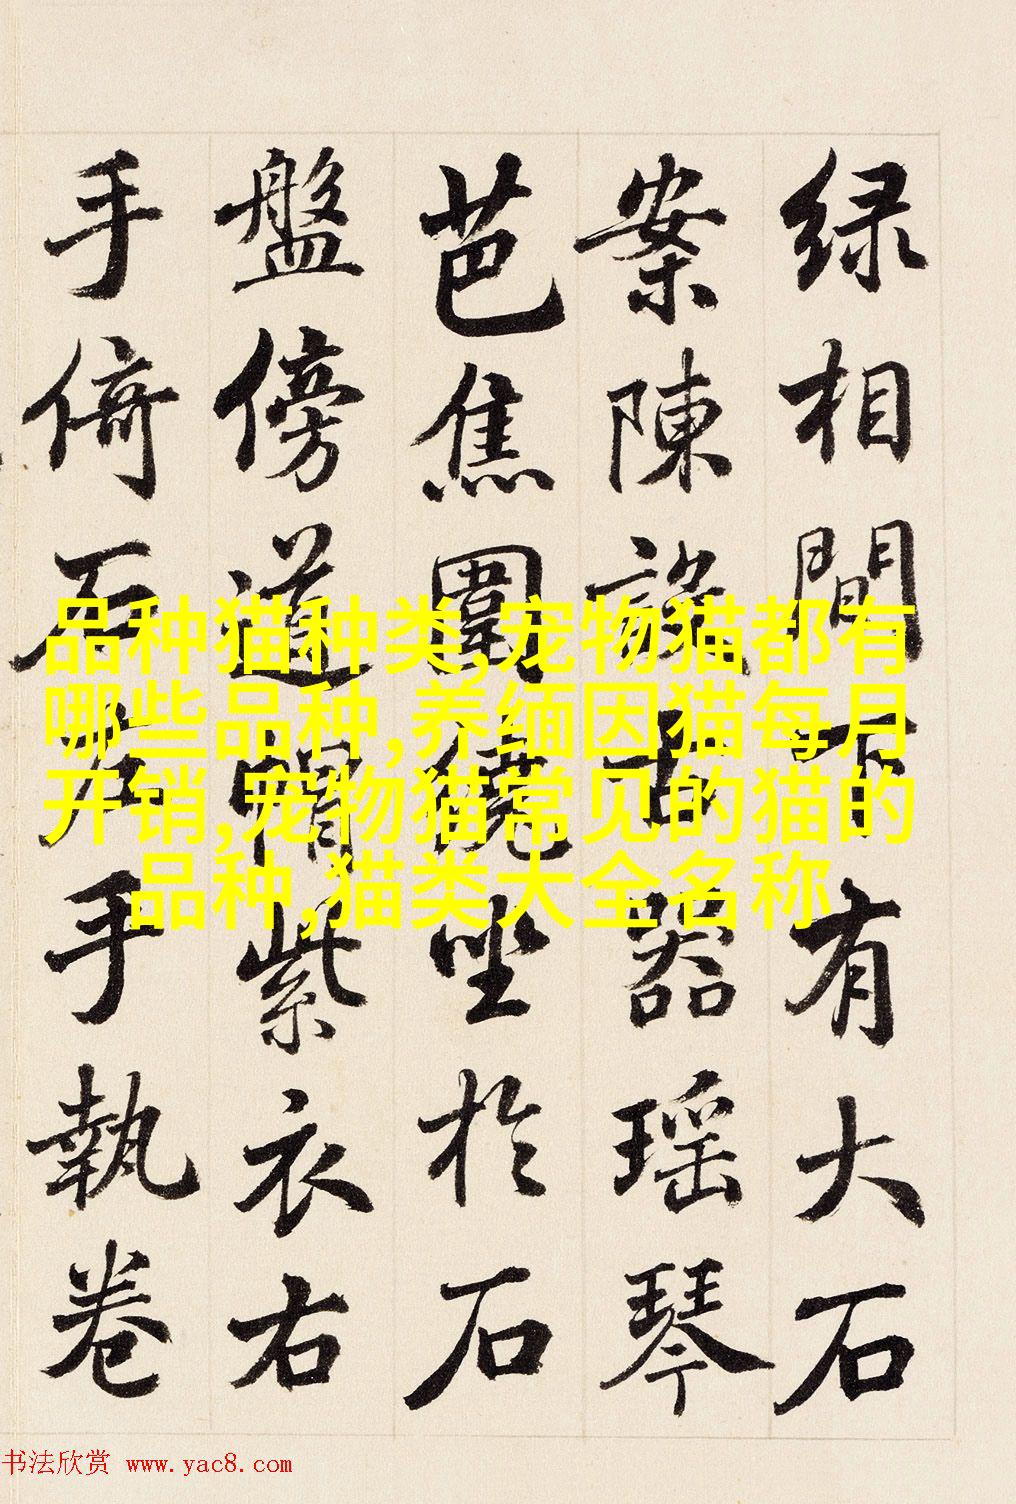 绿相間下有大石
案陳設古器瑶琴
芭焦圍繞坐於石
盤傍道帽紫衣右
手倚石左手執卷
品种猫种类,宠物猫都有
哪些品种,养缅因猫每月
开销,宠物猫常见的猫的
品种,猫类大全名称
书法欣赏 www.yac8.com